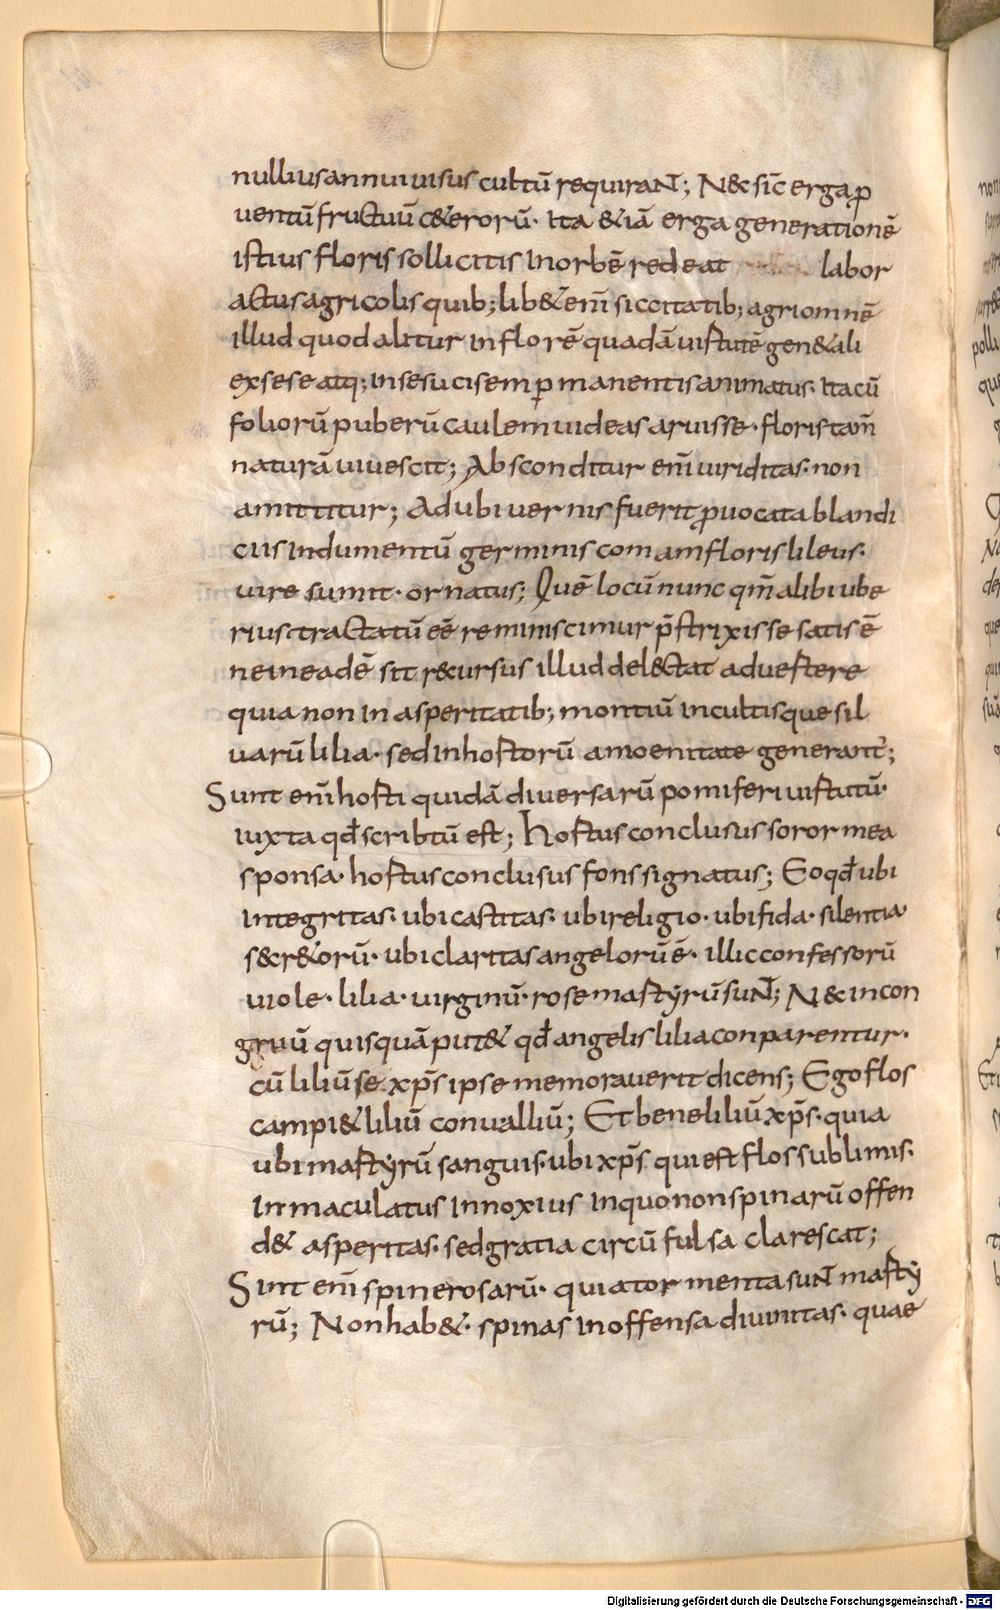 nullius annui uisus cultū requiraNT; N& sic̄ erga ꝓ
uentū fructuū c&erorū· Ita &iā erga generationē
istius floris sollicitis in orbē redeat labor
actus agricolis quib; lib& enī siccitatib; agri omnē
illud quod alitur in florē quadā uirtutē gen&ali
ex sese atq; in se sucis semꝑ manentis animatus· Ita cū
foliorū puberū caulem uideas aruisse· floris tam̄
naturā uiuescit; Absconditur enī uiriditas· non
amittitur; Ad ubi uernis fuerit ꝓuocata blandi
ciis indumentū germinis comam floris lileus·
uire sumit· ornatus; Quē locū nunc qm̄ alibi ube
rius tractatū eē reminiscimur p̄strixisse satis ē
ne in eadē sit r&cursus illud del&tat aduertere
quia non in asperitatib; montiū incultisque sil
uarū lilia· sed in hortorū amoenitate generant̄;
Sunt enī horti quidā diuersarū pomiferi uirtutū·
iuxta qđ scribtū est; Hortus conclusus soror mea
sponsa· hortus conclusus fons signatus; Eo qđ ubi
integritas· ubi castitas· ubi religio· ubi fida· silentia·
s&r&orū· ubi claritas angelorū ē· illic confessorū
uiole· lilia· uirginū· rose martẏrū suNT; N& incon
gruū quisquā put& qđ angelis lilia conparentur·
cū liliū se xp̄s ipse memorauerit dicens; Ego flos
campi & liliū conualliū; Et bene liliū xp̄s· quia
ubi martẏrū sanguis· ubi xp̄s qui est flos sublimis·
Inmaculatus innoxius in quo non spinarū offen
d& asperitas· sed gratia circū fulsa clarescat;
Sunt enī spine rosarū· quia tormenta suNT martẏ
rū; Non hab&· spinas inoffensa diuinitas· quae
Digitalisierung gefördert durch die Deutsche Forschungsgemeinschaft - DFG